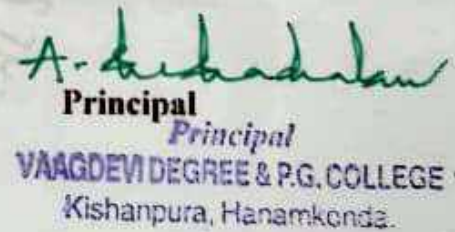 A.
Principal
Principal
VAAGDEVI DEGREE & P.G. COLLEGE
Kishanpura, Hanamkonda.